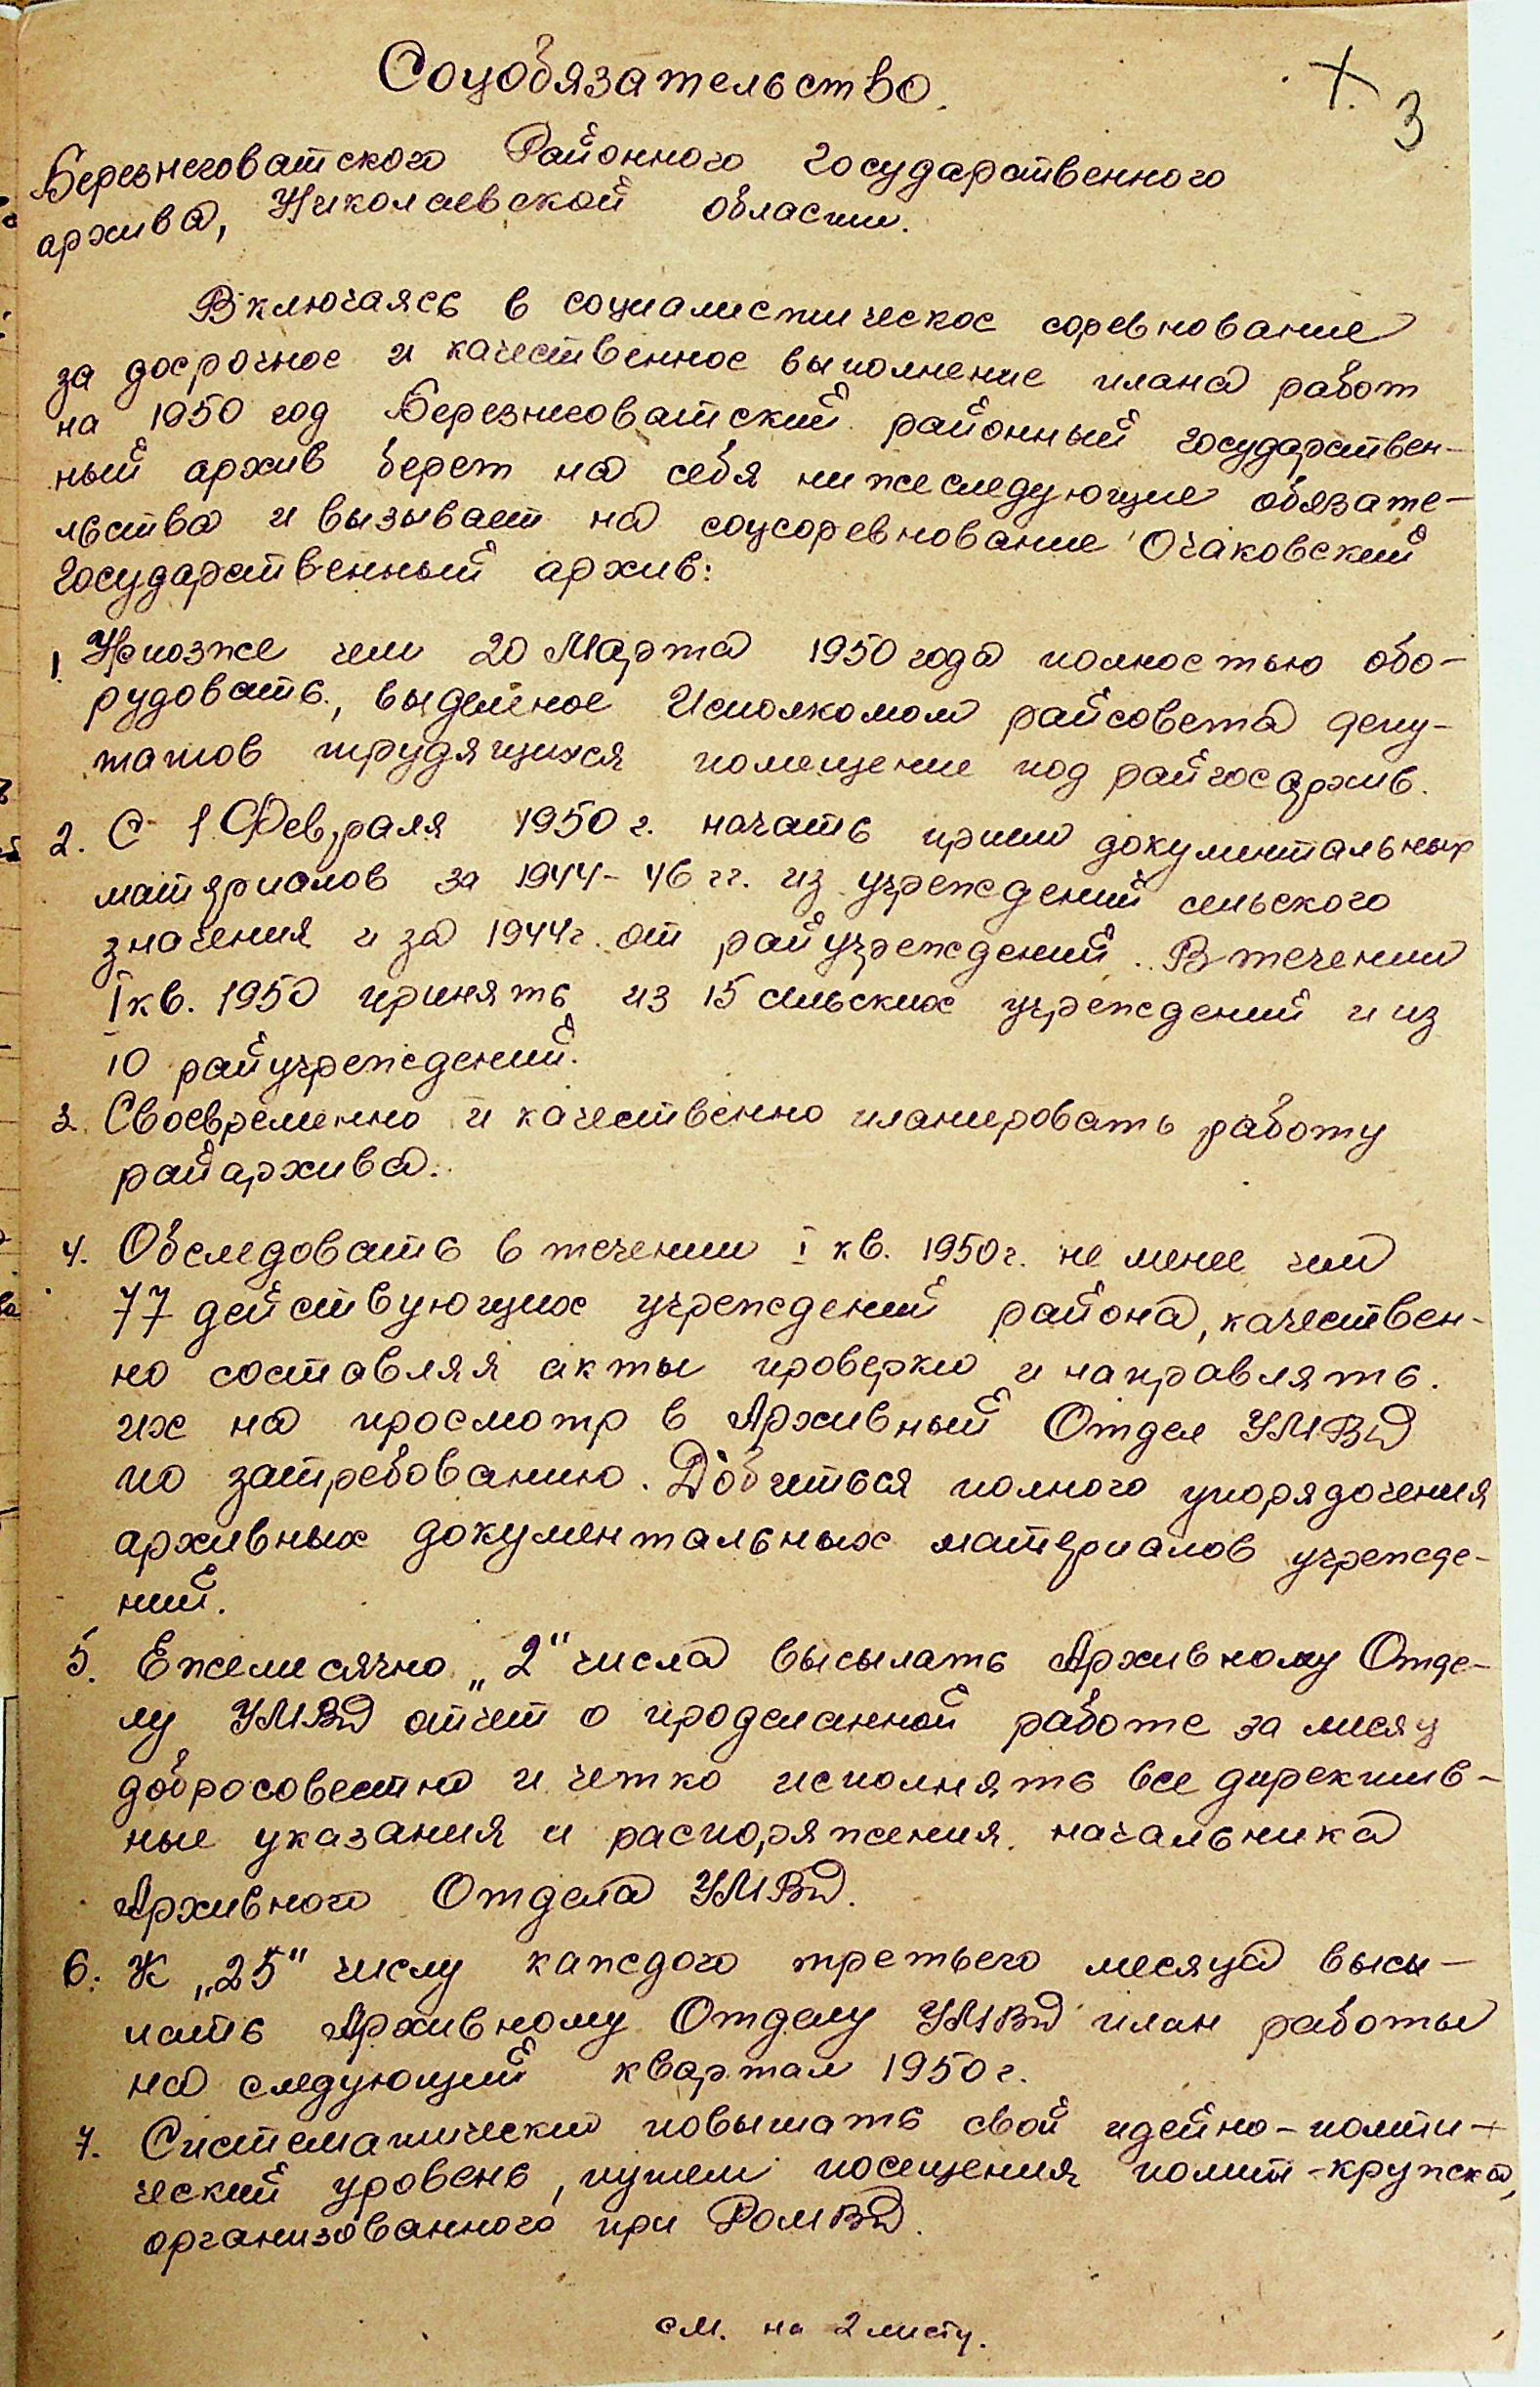 Соцобязательство.
+ 3
Березнеговатского Районного государственного
архива, Николаевской области.
Включаясь в социалистическое соревнование
за досрочное и качественное выполнение плана работ
на 1950 год Березнеговатский районный государствен-
ный архив берет на себя нижеследующие обязате-
льства и вызывает на соцсоревнование Очаковский
государственный архив:
1. Непозже чем 20 Марта 1950 года полностью обо-
рудовать, выделеное Исполкомом райсовета депу-
татов трудящихся помещение под райгосархив.
2. С 1 Февраля 1950 г. начать прием документальных
материалов за 1944-46 гг. из учреждений сельского
значения и за 1944 г. от райучреждений. В течении
I кв. 1950 принять из 15 сельских учреждений и из
10 райучреждений.
3. Своевременно и качественно планировать работу
райархива.
4. Обследовать в течении I кв. 1950 г. не менее чем
77 действующих учреждений района, качествен-
но составляя акты проверки и направлять.
их на просмотр в Архивный Отдел УМВД
по затребованию. Добиться полного упорядочения
архивных документальных материалов учрежде-
ний.
5. Ежемесячно „2" числа высылать Архивному Отде-
лу УМВД отчет о проделанной работе за месяц
добросовестно и четко исполнять все директив-
ные указания и распоряжения начальника
Архивного Отдела УМВД.
6. К „25" числу каждого третьего месяца высы-
лать Архивному Отделу УМВД план работы
на следующий квартал 1950 г.
7. Систематически повышать свой идейно-полити-
ческий уровень, путем посещения полит-кружка,
организованного при РоМВД.
см. на 2 листу.